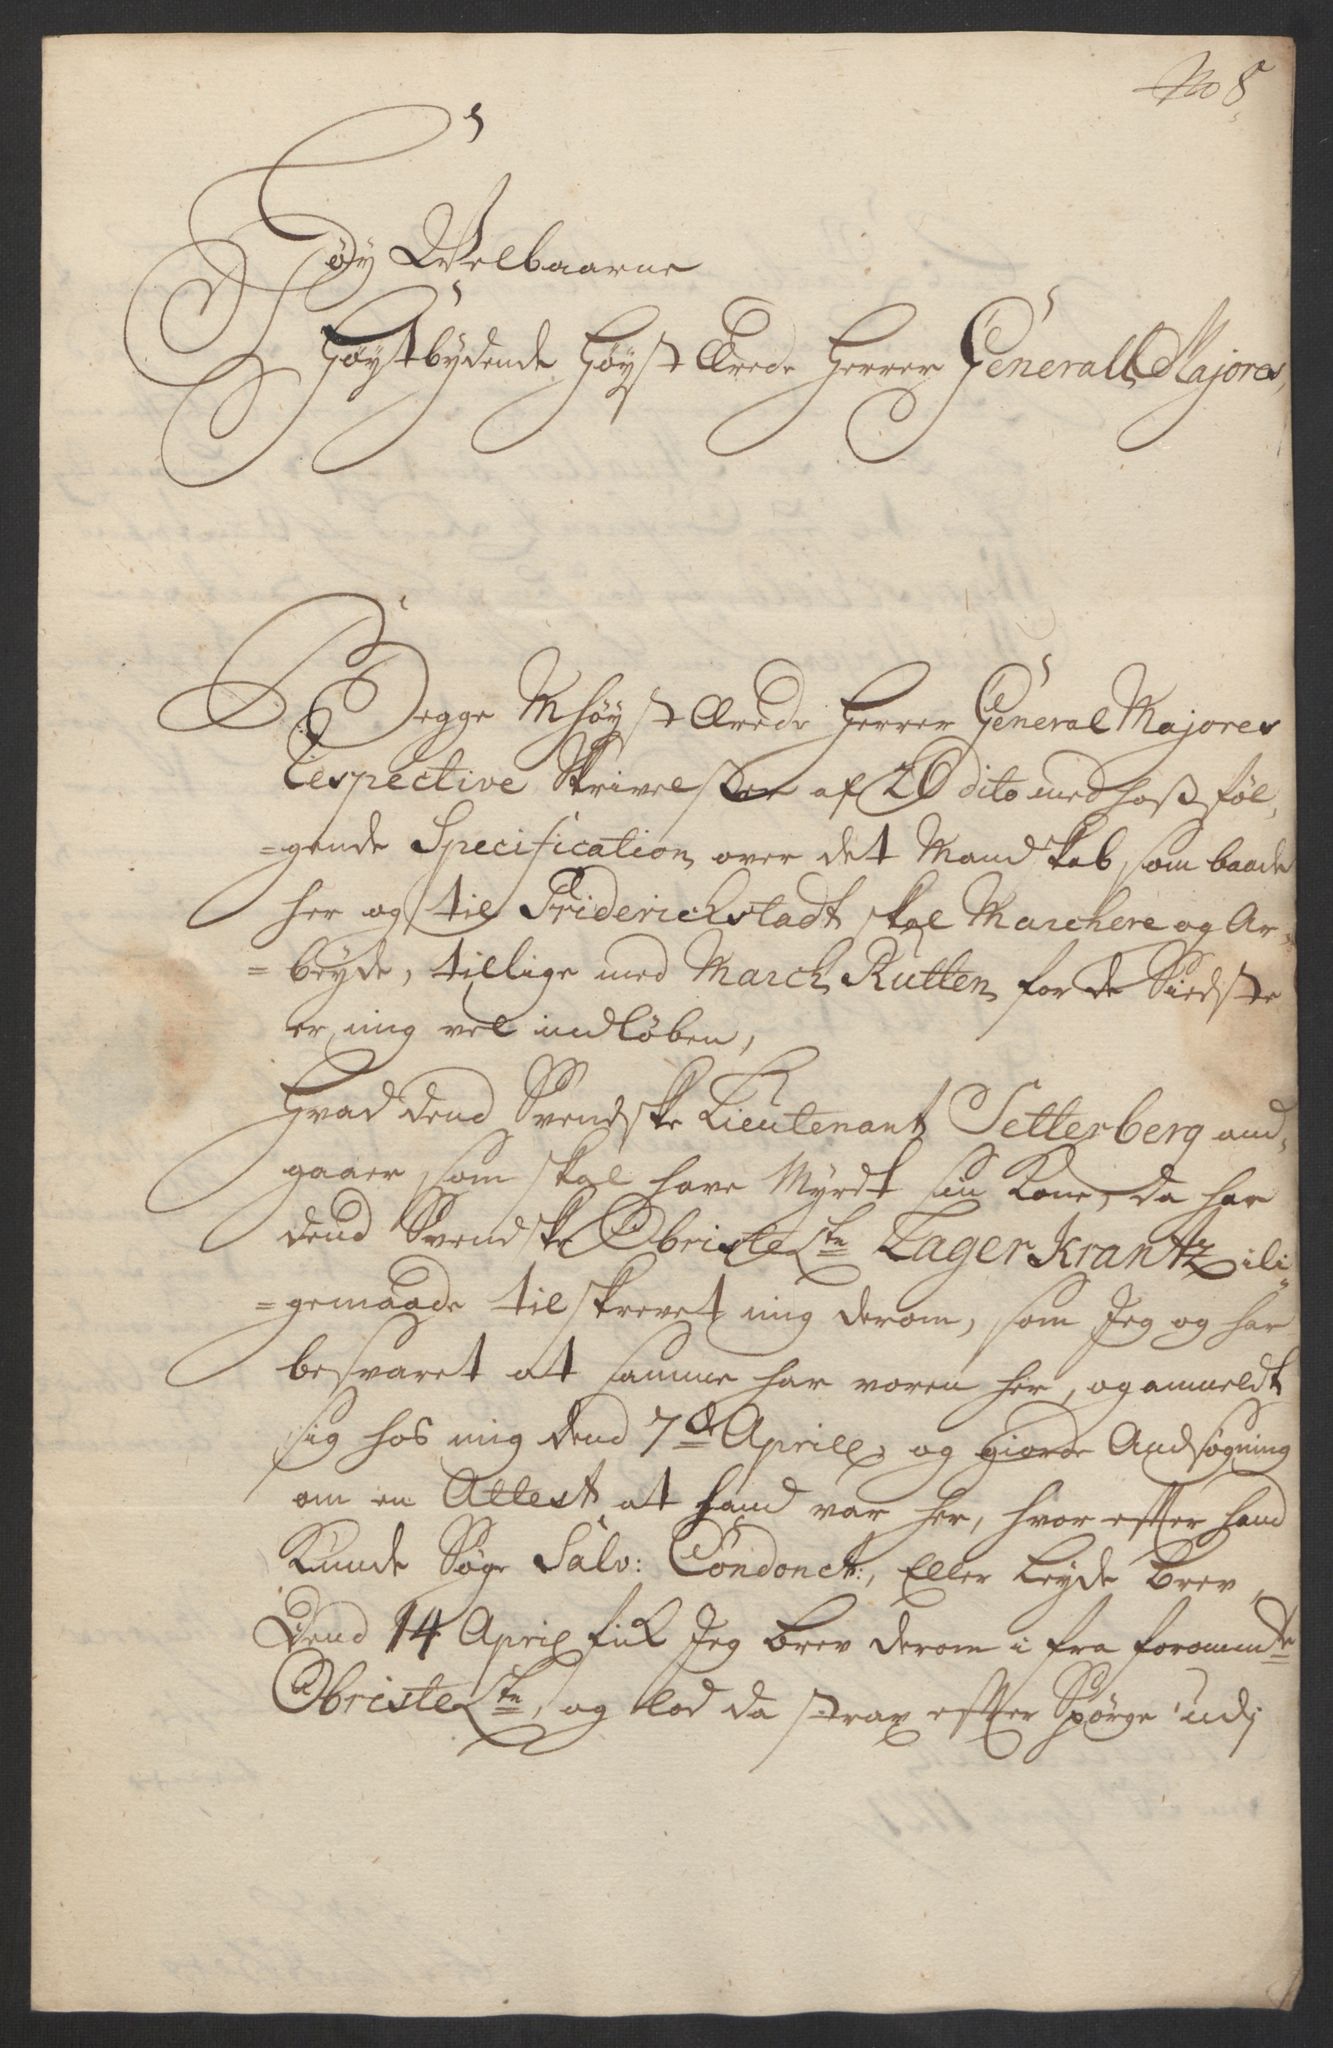 No 8.
Høy Welbaarne
Høystbydende Høyst Ærede Herrer Generall Majores,
Begge Mhøyst Ærede Herrer General Majores
Respective Skrivelser af 20 dito med hoßføl,
=gende Specification, over det Mandskab, som baade
her og til Friderichstadt skal Marchere og Ar=
=beyde, tillige med March Rutten, for de Sidste
er mig vel indløben,
Hvad dend Svendske Lieutenant Setterberg and,
gaaer som skal have Myrdt sin Kone, da har
dend Svendske Obriste Ltn LagerKrantz ili=
=gemaade tilskrevet mig derom, som Jeg og har
besvaret at samme har voren her, og anmeldt
sig hos mig dend 7de Aprill, og giorde Andsøgning
om en Attest at hand var her, hvor effter hand
Kunde Søge Salv: Condonct:, Eller Leyde Brev,
Dend 14 April fik Jeg brev derom i fra forommte
Obriste Ltn, og lod da strax effter Spørge udj